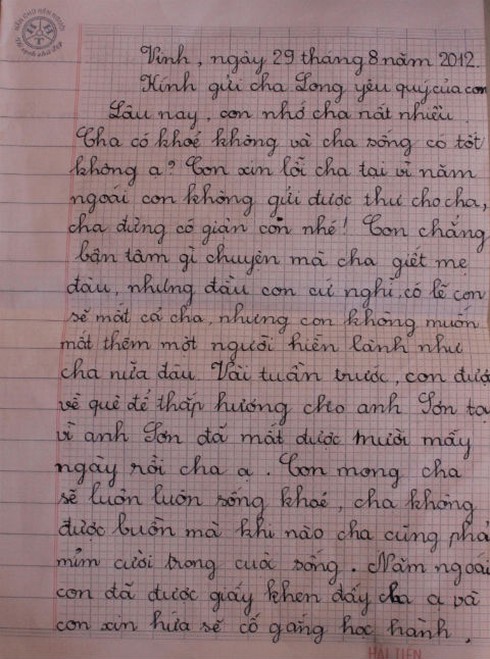 Vinh, ngày 29 tháng 8 năm 2012.
Kính gửi cha Long yêu quý của con
Lâu nay, con nhớ cha nất nhiều.
Cha có khoẻ không và cha sống có tốt
không ạ? Con xin lỗi cha tại vì năm
ngoái con không gửi được thư cho cha,
cha đừng có giận con nhé! Con chẳng
bận tâm gì chuyện mà cha giết mẹ
đâu, nhưng đầu con cứ nghĩ, có lẽ con
sẽ mất cả cha, nhưng con không muốn
mất thêm một người hiền lành như
cha nữa đâu. Vài tuần trước, con được
về quê để thắp hương cho anh Sơn tạ
vì anh Sơn đã mất được mười mấy
ngày rồi cha ạ. Con mong cha
sẽ luôn luôn sống khoẻ, cha không
được buồn mà khi nào cha cũng phả
mỉm cười trong cuộc sống. Năm ngoái
con đã được giấy khen đấy cha ạ và
con xin hứa sẽ cố gắng học hành,
HẢI TIẾN